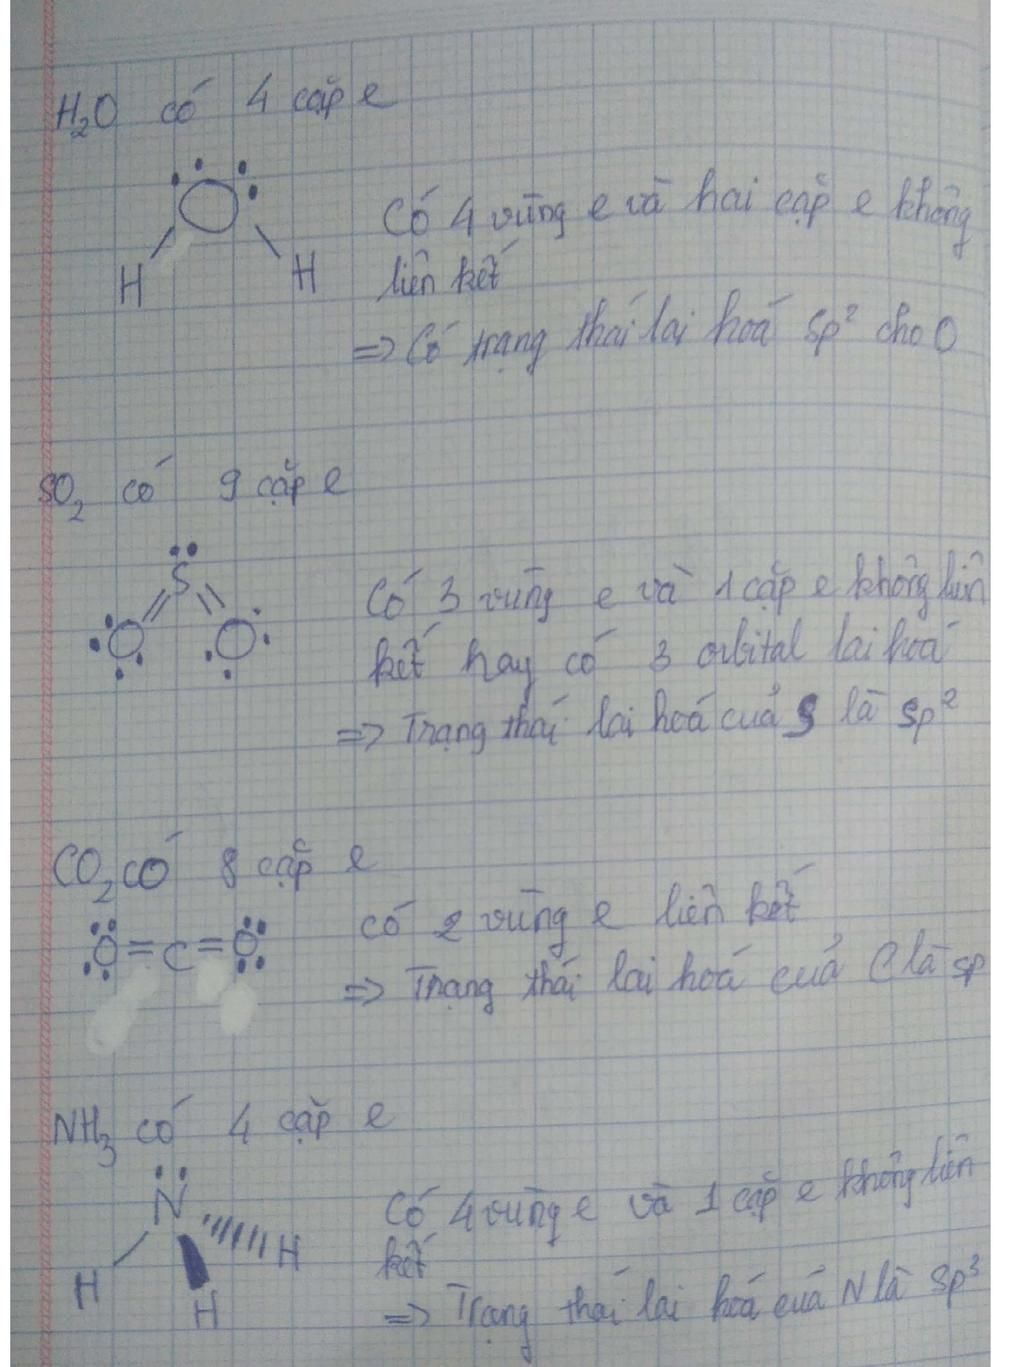 H₂O có 4 cặp e
O
H H
Có 4 vùng e và hai cặp e không
liên kết
=> Có trạng thái lai hoá sp² cho O
SO₂ có 9 cặp e
S
O O
Có 3 vùng e và 1 cặp e không liên
kết hay có 3 orbital lai hoá
=> Trạng thái lai hoá cuả S là sp²
CO₂ có 8 cặp e
O=C=O
có 2 vùng e liên kết
=> Trạng thái lai hoá cuả C là sp
NH₃ có 4 cặp e
N
H H
H
Có 4 vùng e và 1 cặp e không liên
kết
=> Trạng thái lai hoá cuả N là sp³